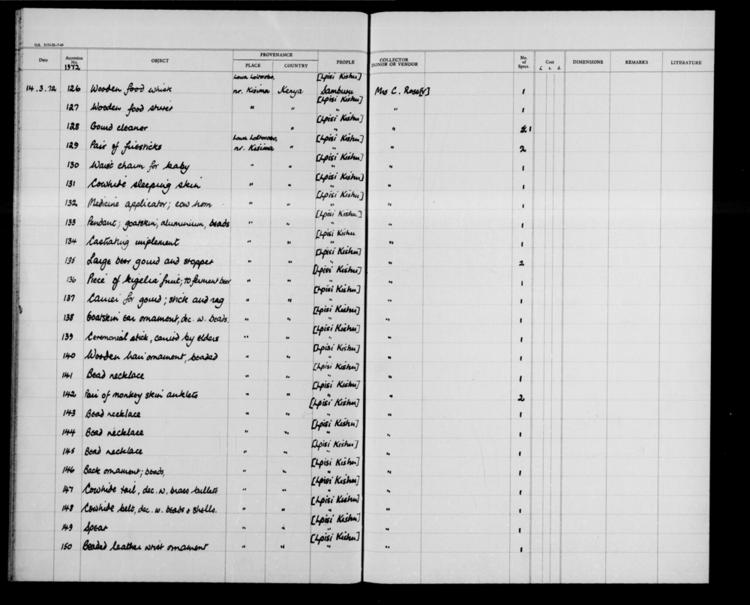 Date Accession No. OBJECT PROVENANCE PLACE COUNTRY PEOPLE COLLECTOR DONOR OR VENDOR No. of Specs. Cost £ s. d. DIMENSIONS REMARKS LITERATURE
1972
[Lpisi Kishu]
14.3.72 126 Wooden food whisk nr. Kisima Kenya Samburu Mrs C. 1
[Lpisi Kishu]
127 Wooden food stirrer " " " " 1
[Lpisi Kishu]
128 Gourd cleaner " " " 1
[Lpisi Kishu]
129 Pair of firesticks nr. Kisima " " " 2
[Lpisi Kishu]
130 Waist charm for baby " " " " 1
[Lpisi Kishu]
131 Cowhide sleeping skin " " " " 1
[Lpisi Kishu]
132 Medicine applicator; cow horn " " " " 1
[Lpisi Kishu]
133 Pendant; goatskin, aluminium, beads " " " " 1
[Lpisi Kishu
134 Castrating implement " " " " 1
[Lpisi Kishu]
135 Large beer gourd and stopper " " " " 2
[Lpisi Kishu]
136 Piece of kigelia fruit; to ferment beer " " " " 1
[Lpisi Kishu]
137 Carrier for gourd; stick and rag " " " " 1
[Lpisi Kishu]
138 Goatskin ear ornament, dec. w. beads. " " " " 1
[Lpisi Kishu]
139 Ceremonial stick, carried by elders " " " " 1
[Lpisi Kishu]
140 Wooden hair ornament, beaded " " " " 1
[Lpisi Kishu]
141 Bead necklace " " " " 1
[Lpisi Kishu]
142 Pair of monkey skin anklets " " " " 2
[Lpisi Kishu]
143 Bead necklace " " " " 1
[Lpisi Kishu]
144 Bead necklace " " " " 1
[Lpisi Kishu]
145 Bead necklace " " " " 1
[Lpisi Kishu]
146 Back ornament; beads, " " " " 1
[Lpisi Kishu]
147 Cowhide tail, dec. w. brass bullets " " " " 1
[Lpisi Kishu]
148 Cowhide belt, dec. w. beads & shells. " " " " 1
[Lpisi Kishu]
149 Spear " " " " 1
[Lpisi Kishu]
150 Beaded leather wrist ornament " " " " 1